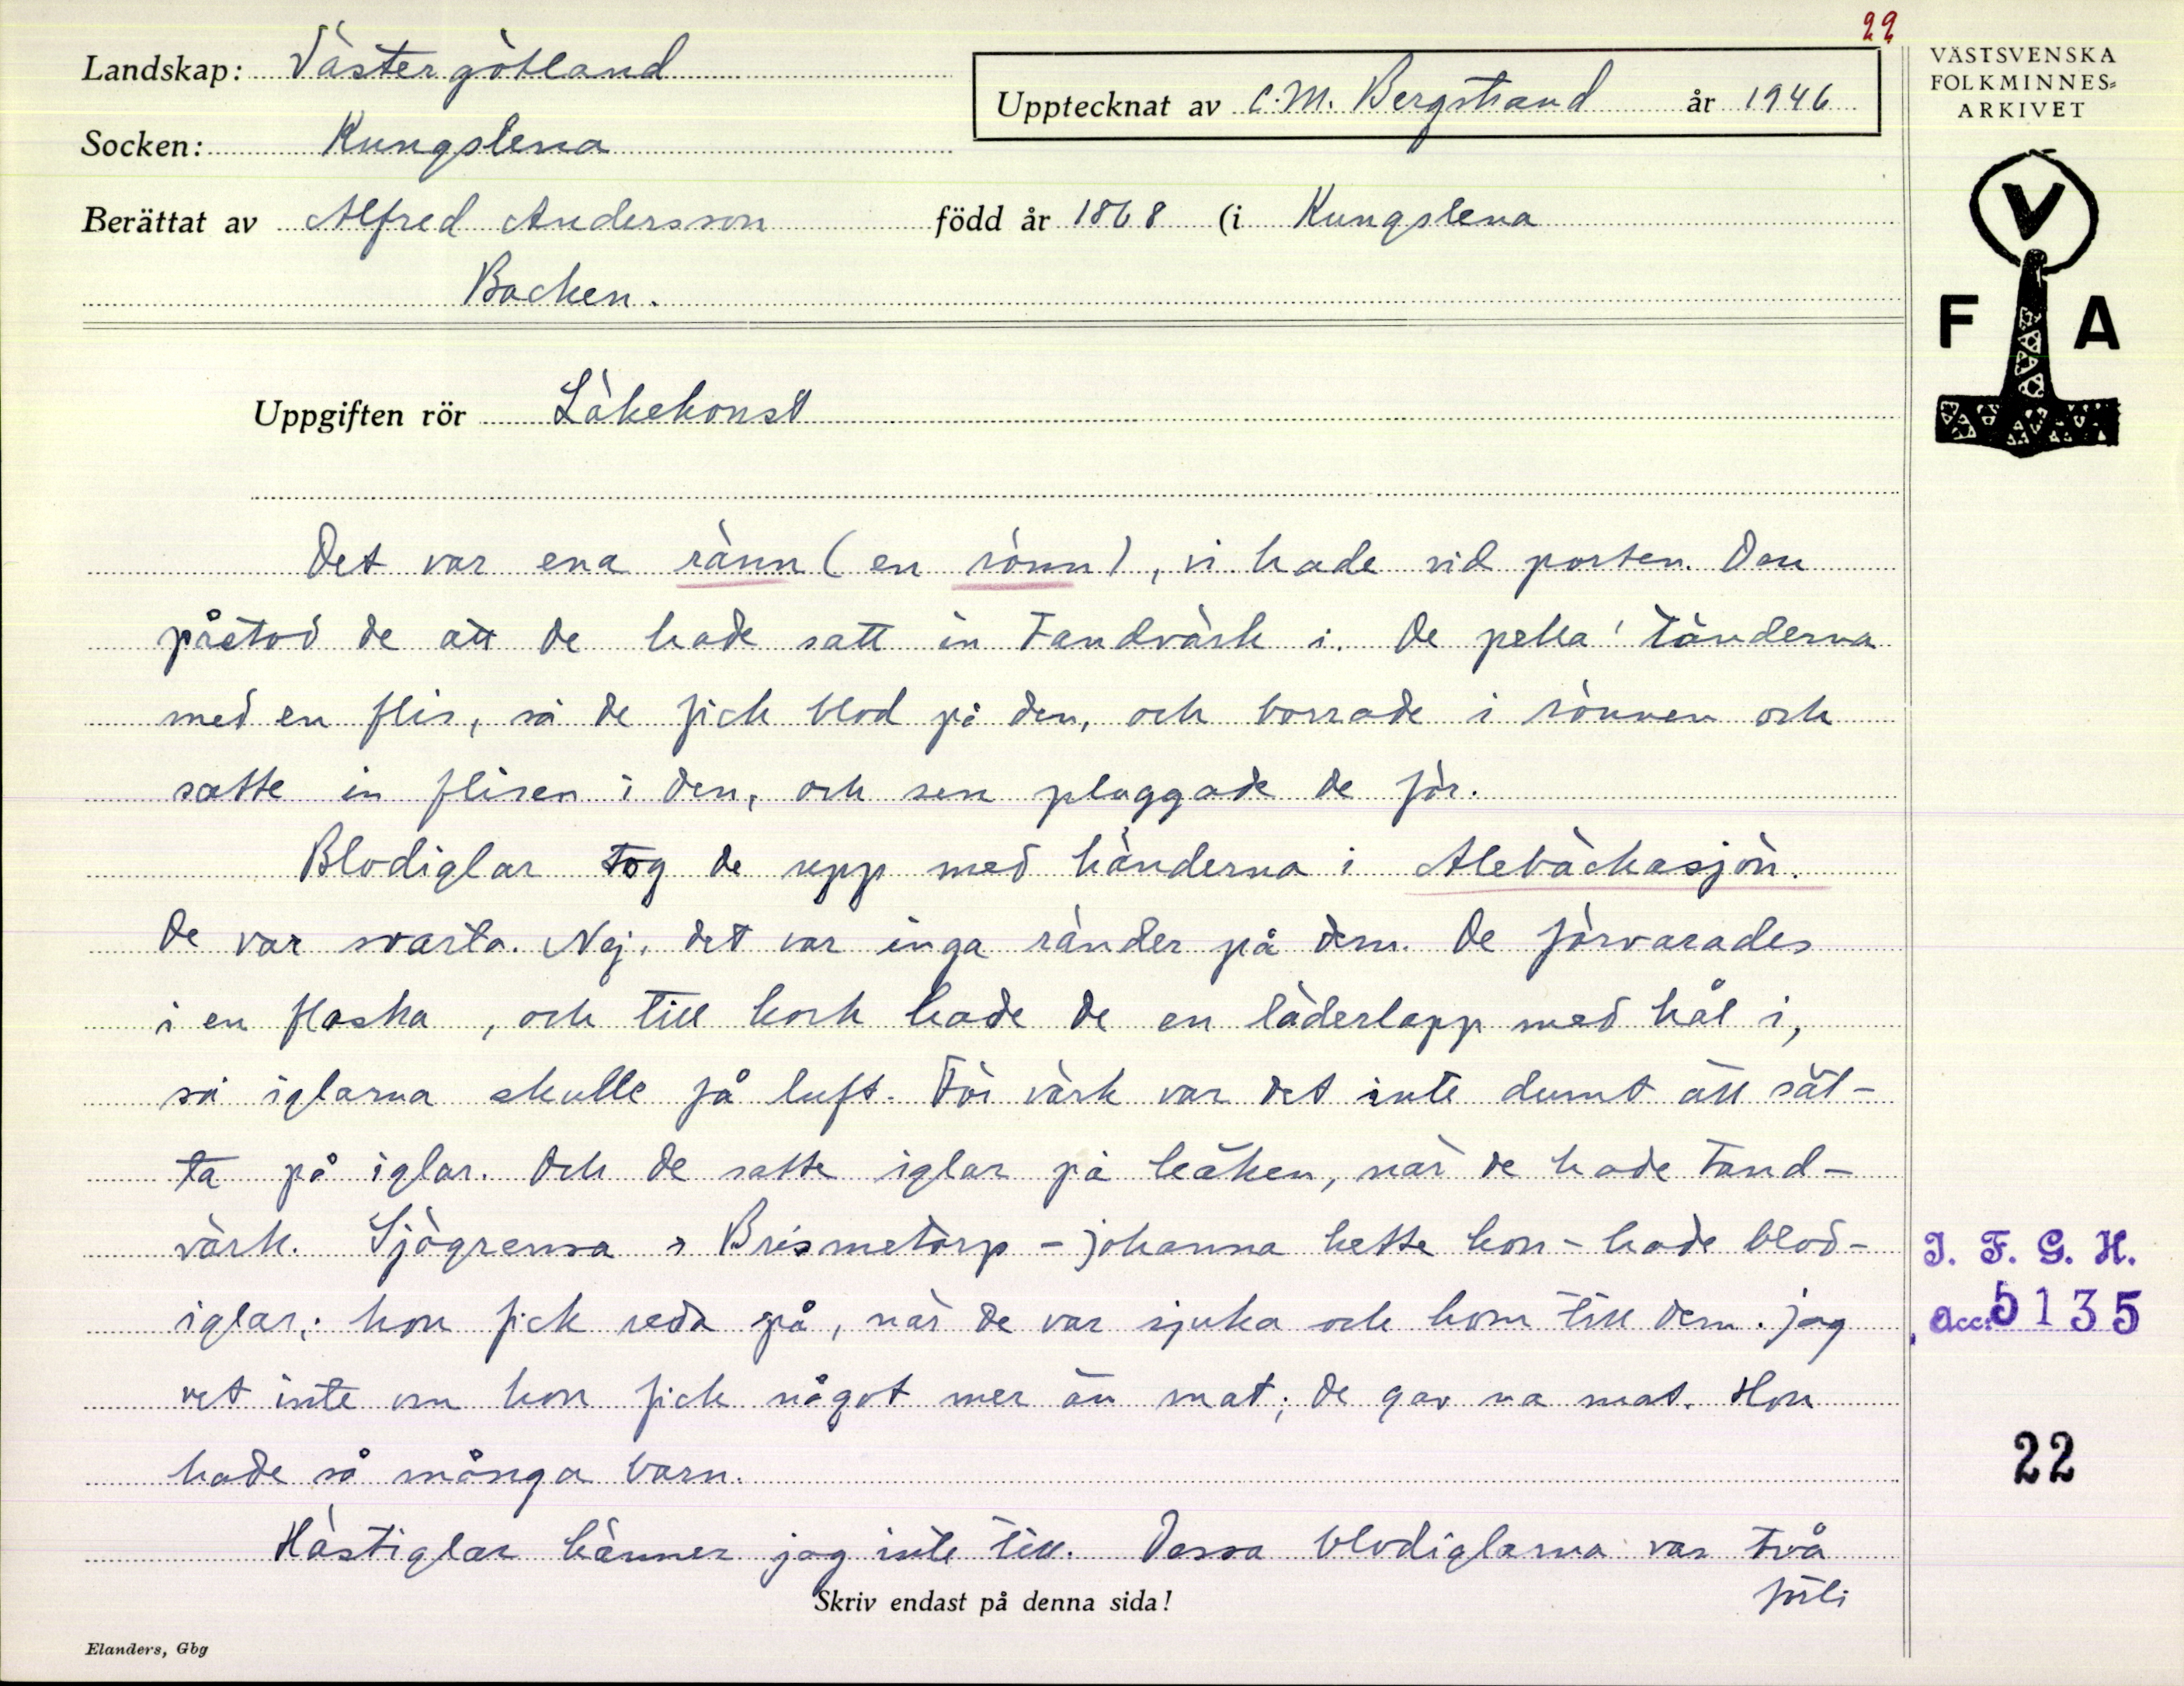 22
Landskap: Västergötland
Upptecknat av C.M. Bergstrand år 1946
VÄSTSVENSKA
FOLKMINNES=
ARKIVET
Socken: Kungslena
Berättat av Alfred Andersson född år 1868 (i Kungslena
Backen.
V
F A
Uppgiften rör Läkekonst
Det var ena ränn (en rönn), vi hade vid porten. Den
påstod de att de hade satt in tandvärk i. De petta' tänderna
med en flis, så de fick blod på den, och borrade i rönnen och
satte in flisen i den, och sen pluggade de för.
Blodiglar tog de upp med händerna i Alebäckasjön.
De var svarta. Nej, det var inga ränder på dem. De förvarades
i en flaska, och till kork hade de en läderlapp med hål i,
så iglarna skulle få luft. För värk var det inte dumt att sät-
ta på iglar. Och de satte iglar på käken, när de hade tand-
värk. Sjögrensa i Brismetorp - Johanna hette hon - hade blod-
iglar; hon fick reda på, när de var sjuka och kom till dem. Jag
vet inte om hon fick något mer än mat; de gav na mat. Hon
hade så många barn.
Hästiglar känner jag inte till. Dessa blodiglarna var två
forts
Skriv endast på denna sida!
Elanders, Gbg
I. F. G. H.
Acc: 5135
22